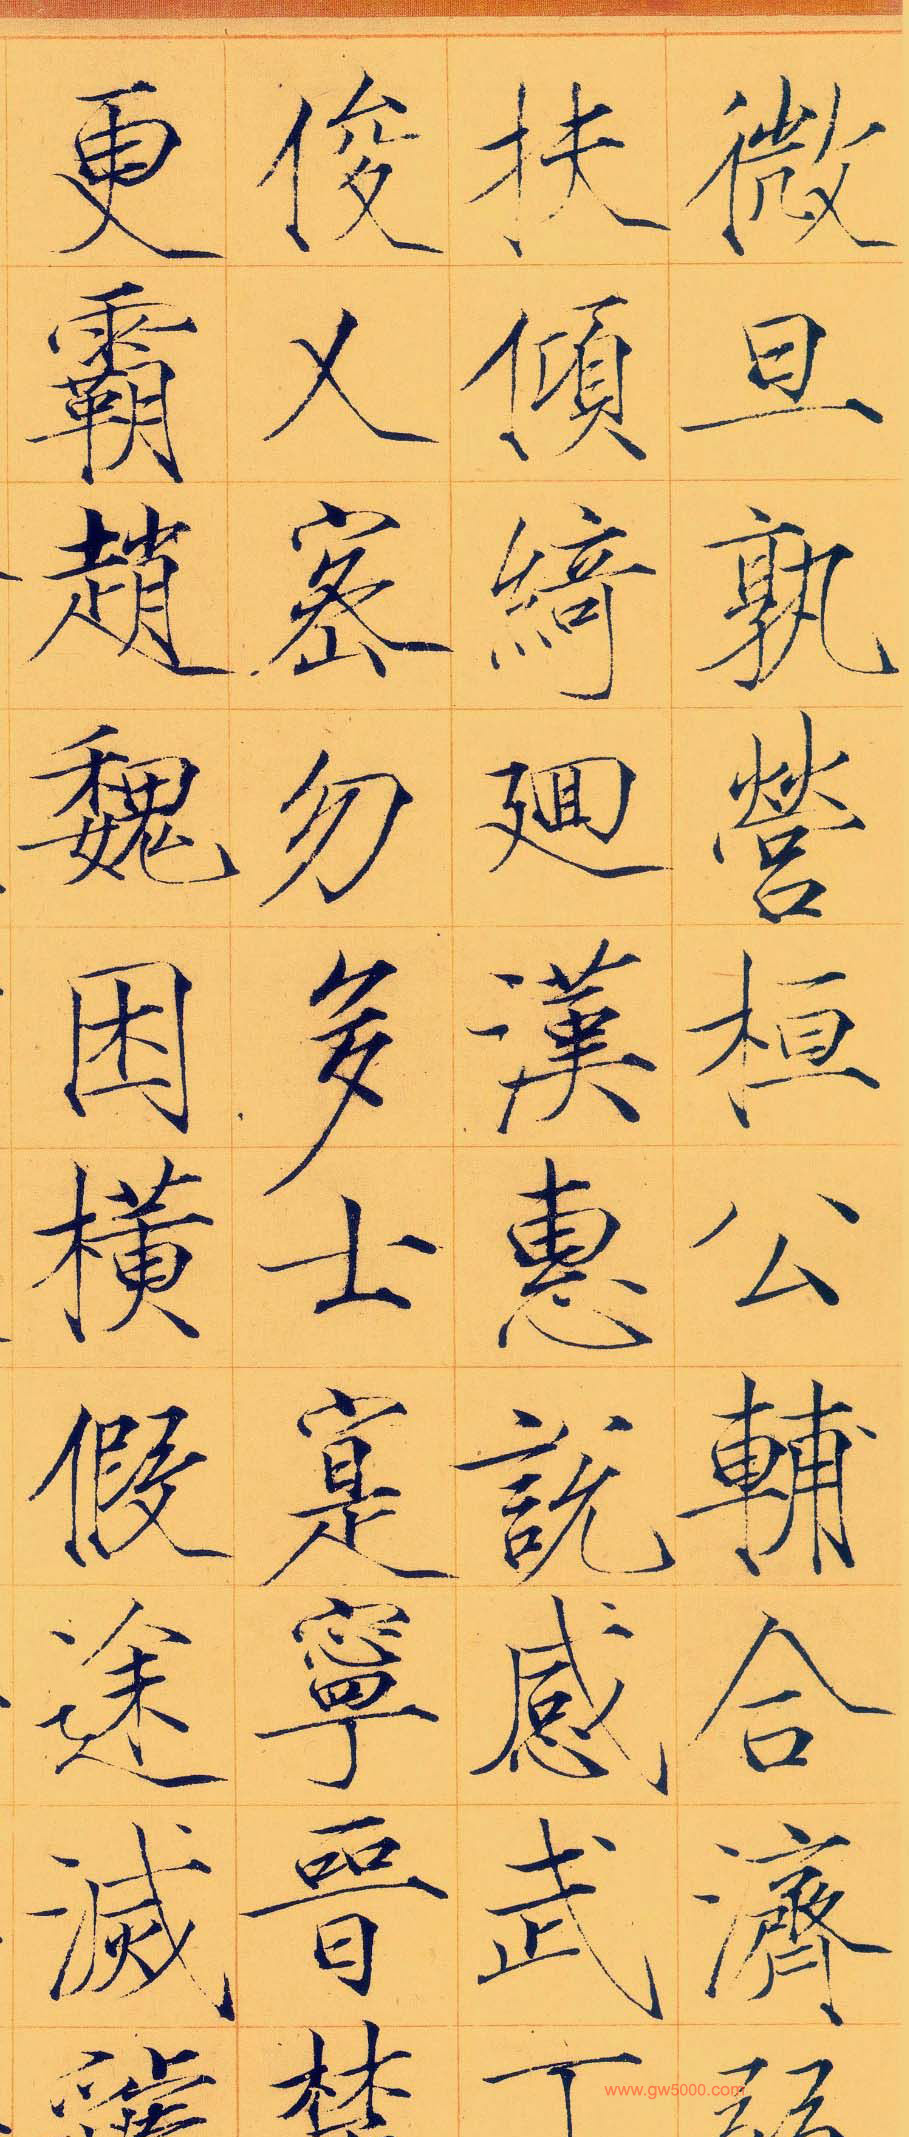 微旦孰營桓公輔合濟弱
扶傾綺廻漢惠說感武丁
俊乂密勿多士寔寧晉楚
更霸趙魏困橫假途滅虢
www.gw5000.com